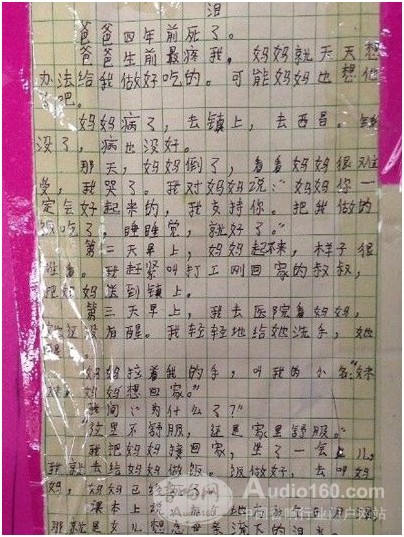 泪
爸爸四年前死了。
爸爸生前最疼我,妈妈就天天想
办法给我做好吃的。可能妈妈也想他
了吧。
妈妈病了,去镇上,去西昌。钱
没了,病也没好。
那天,妈妈倒了,看着妈妈很难
受,我哭了。我对妈妈说:“妈妈你一
定会好起来的,我支持你。把我做的
饭吃了,睡睡觉,就好了。”
第二天早上,妈妈起不来,样子很
我赶紧叫打工刚回家的叔叔,
把妈妈送到镇上。
第三天早上,我去医院看妈妈,
她还没有醒。我轻轻地给她洗手,她
妈妈拉着我的手,叫我的小名:“妹
妹,妈妈想回家。”
我问:“为什么了?”
“这里不舒服,还是家里舒服。”
我把妈妈接回家,坐了一会儿,
我就去给妈妈做饭。饭做好,去叫妈
妈,妈妈已经
课本上说
那就是女儿想念母亲流下的泪水。
音响网
Audio160.com